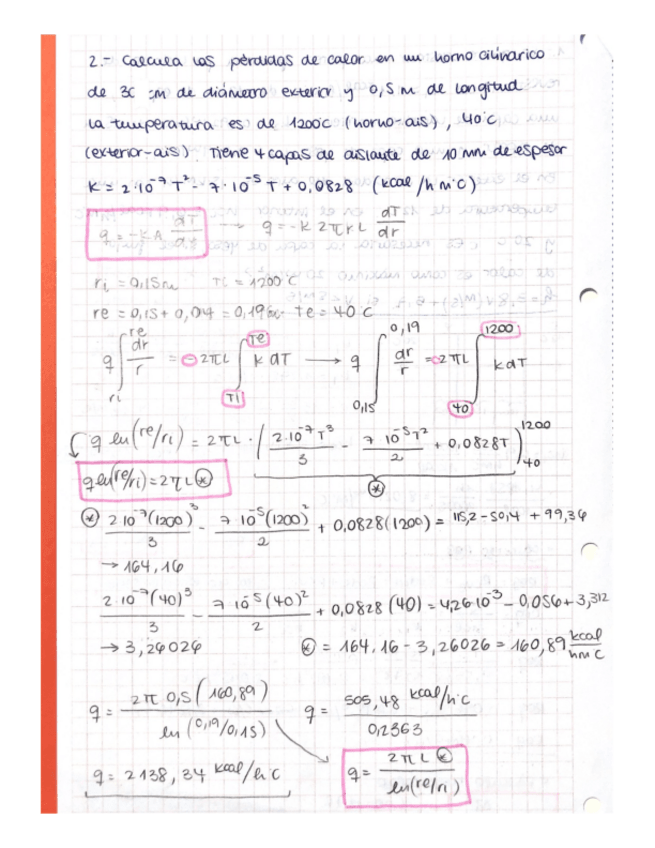 2.- Calcula las pérdidas de calor en un horno cilíndrico
de 30 cm de diámetro exterior y 0,5 m de longitud
la temperatura es de 1200°C (horno-ais), 40°C
(exterior-ais). Tiene 4 capas de aislante de 10 mm de espesor
K = 2·10⁻⁷ T² - 7·10⁻⁵ T + 0,0828 (kcal/h m°C)
q = -KA dT/dr → q = -K 2πrL dT/dr
ri = 0,15m Ti = 1200°C
re = 0,15 + 0,04 = 0,19m te = 40°C
q ∫_ri^re dr/r = -2πL ∫_Ti^Te K dT → q ∫_0,15^0,19 dr/r = 2πL ∫_40^1200 K dT
q ln(re/ri) = 2πL · (2·10⁻⁷T³/3 - 7·10⁻⁵T²/2 + 0,0828T)_40^1200
q ln(re/ri) = 2πL⊛ ⊛
⊛ 2·10⁻⁷(1200)³/3 - 7·10⁻⁵(1200)²/2 + 0,0828(1200) = 115,2 - 50,4 + 99,36
→ 164,16
2·10⁻⁷(40)³/3 - 7·10⁻⁵(40)²/2 + 0,0828(40) = 4,26·10⁻³ - 0,056 + 3,312
→ 3,26026 ⊛ = 164,16 - 3,26026 = 160,89 kcal/hm°C
q = 2π 0,5(160,89)/ln(0,19/0,15) q = 505,48 kcal/h°C/0,2363
q = 2138,34 kcal/h°C q = 2πL⊛/ln(re/ri)